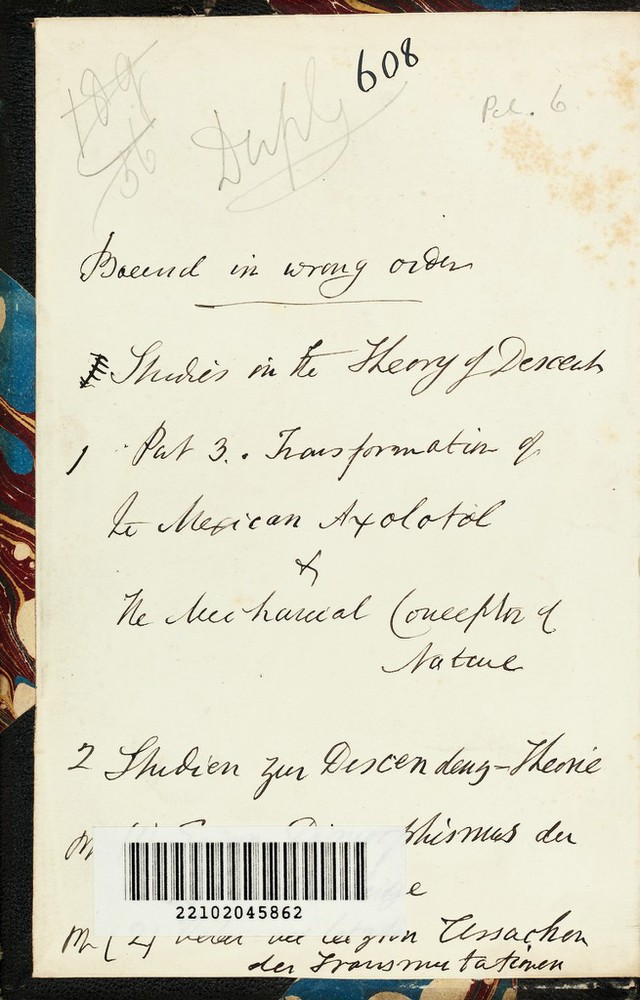 608
Dupl
Bound in wrong order
Studies in the Theory of Descent
1 Part 3. Transformation of
the Mexican Axolotol
&
The Mechanical Conception of
Nature
2 Studien zur Descendenz-Theorie
der
22102045862
(2) Ueber die letzten Ursachen
der Transmutationen